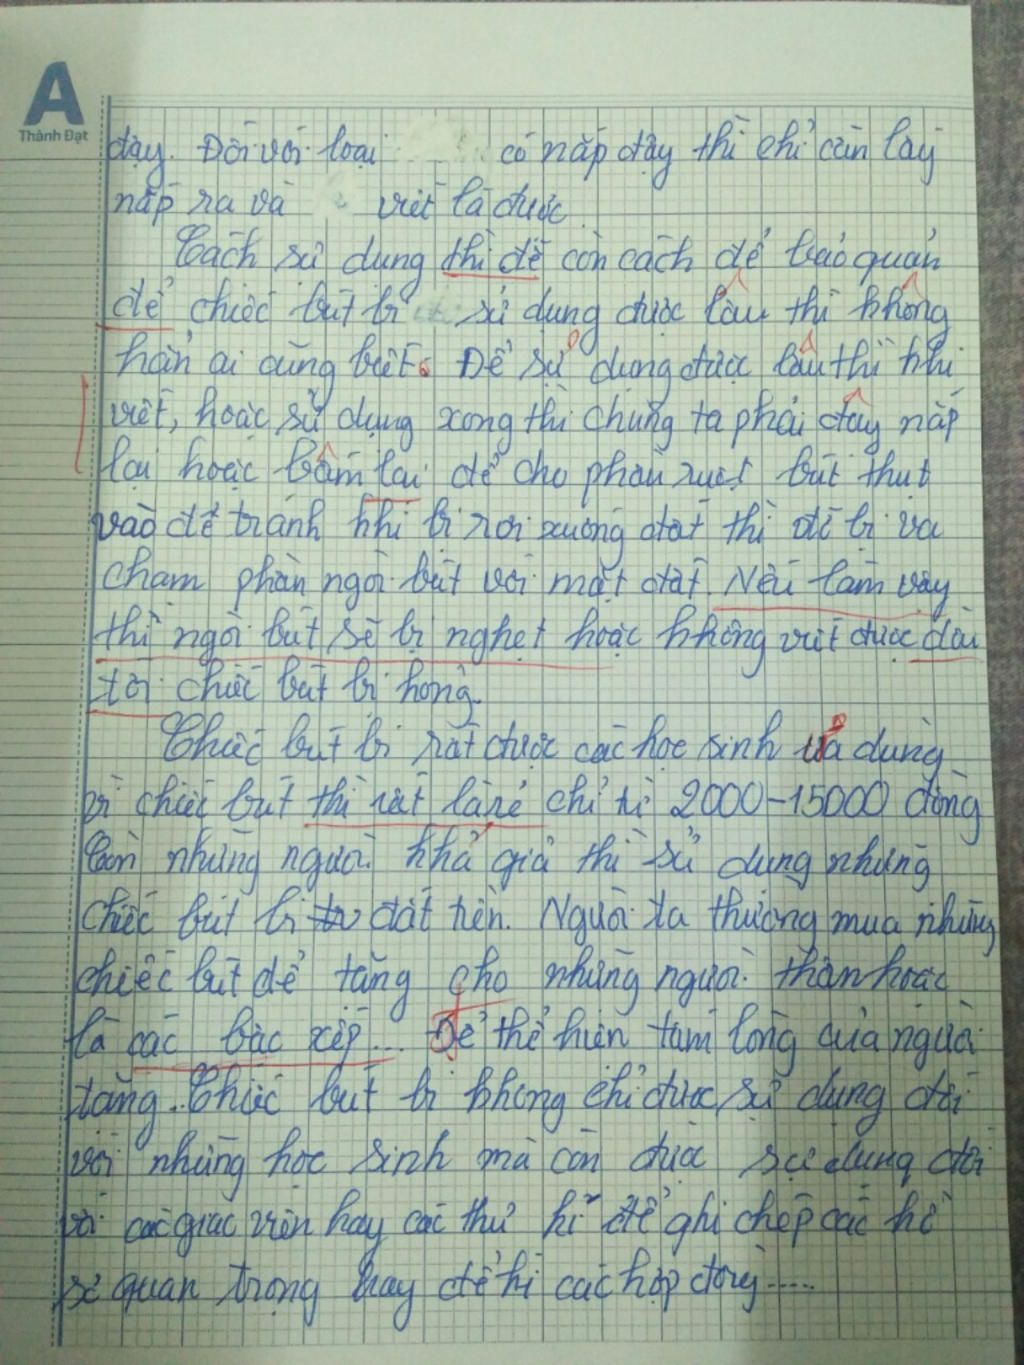 A
Thành Đạt
đậy. Đối với loại có nắp đậy thì chỉ cần lấy
nắp ra và viết là được
Cách sử dụng thì dễ còn cách để bảo quản
để chiếc bút bi sử dụng được lâu thì không
hẳn ai cũng biết. Để sử dụng được lâu thì khi
viết, hoặc sử dụng xong thì chúng ta phải đậy nắp
lại hoặc bấm lại để cho phần ruột bút thụt
vào để tránh khi bị rơi xuống đất thì đỡ bị va
chạm phần ngòi bút với mặt đất. Nếu làm vậy
thì ngòi bút sẽ bị nghẹt hoặc không viết được dẫn
tới chiếc bút bị hỏng.
Chiếc bút bi rất được các học sinh ưa dùng
vì chiếc bút thì rất là rẻ chỉ từ 2000-15000 đồng
Còn những người khá giả thì sử dụng những
chiếc bút bi đắt tiền. Người ta thường mua những
chiếc bút để tặng cho những người thân hoặc
là các bậc xếp... Để thể hiện tấm lòng của người
tặng. Chiếc bút bi không chỉ được sử dụng đối
với những học sinh mà còn được sử dụng đối
với các giáo viên hay các thư kí để ghi chép các hồ
sơ quan trọng hay để kí các hợp đồng.....